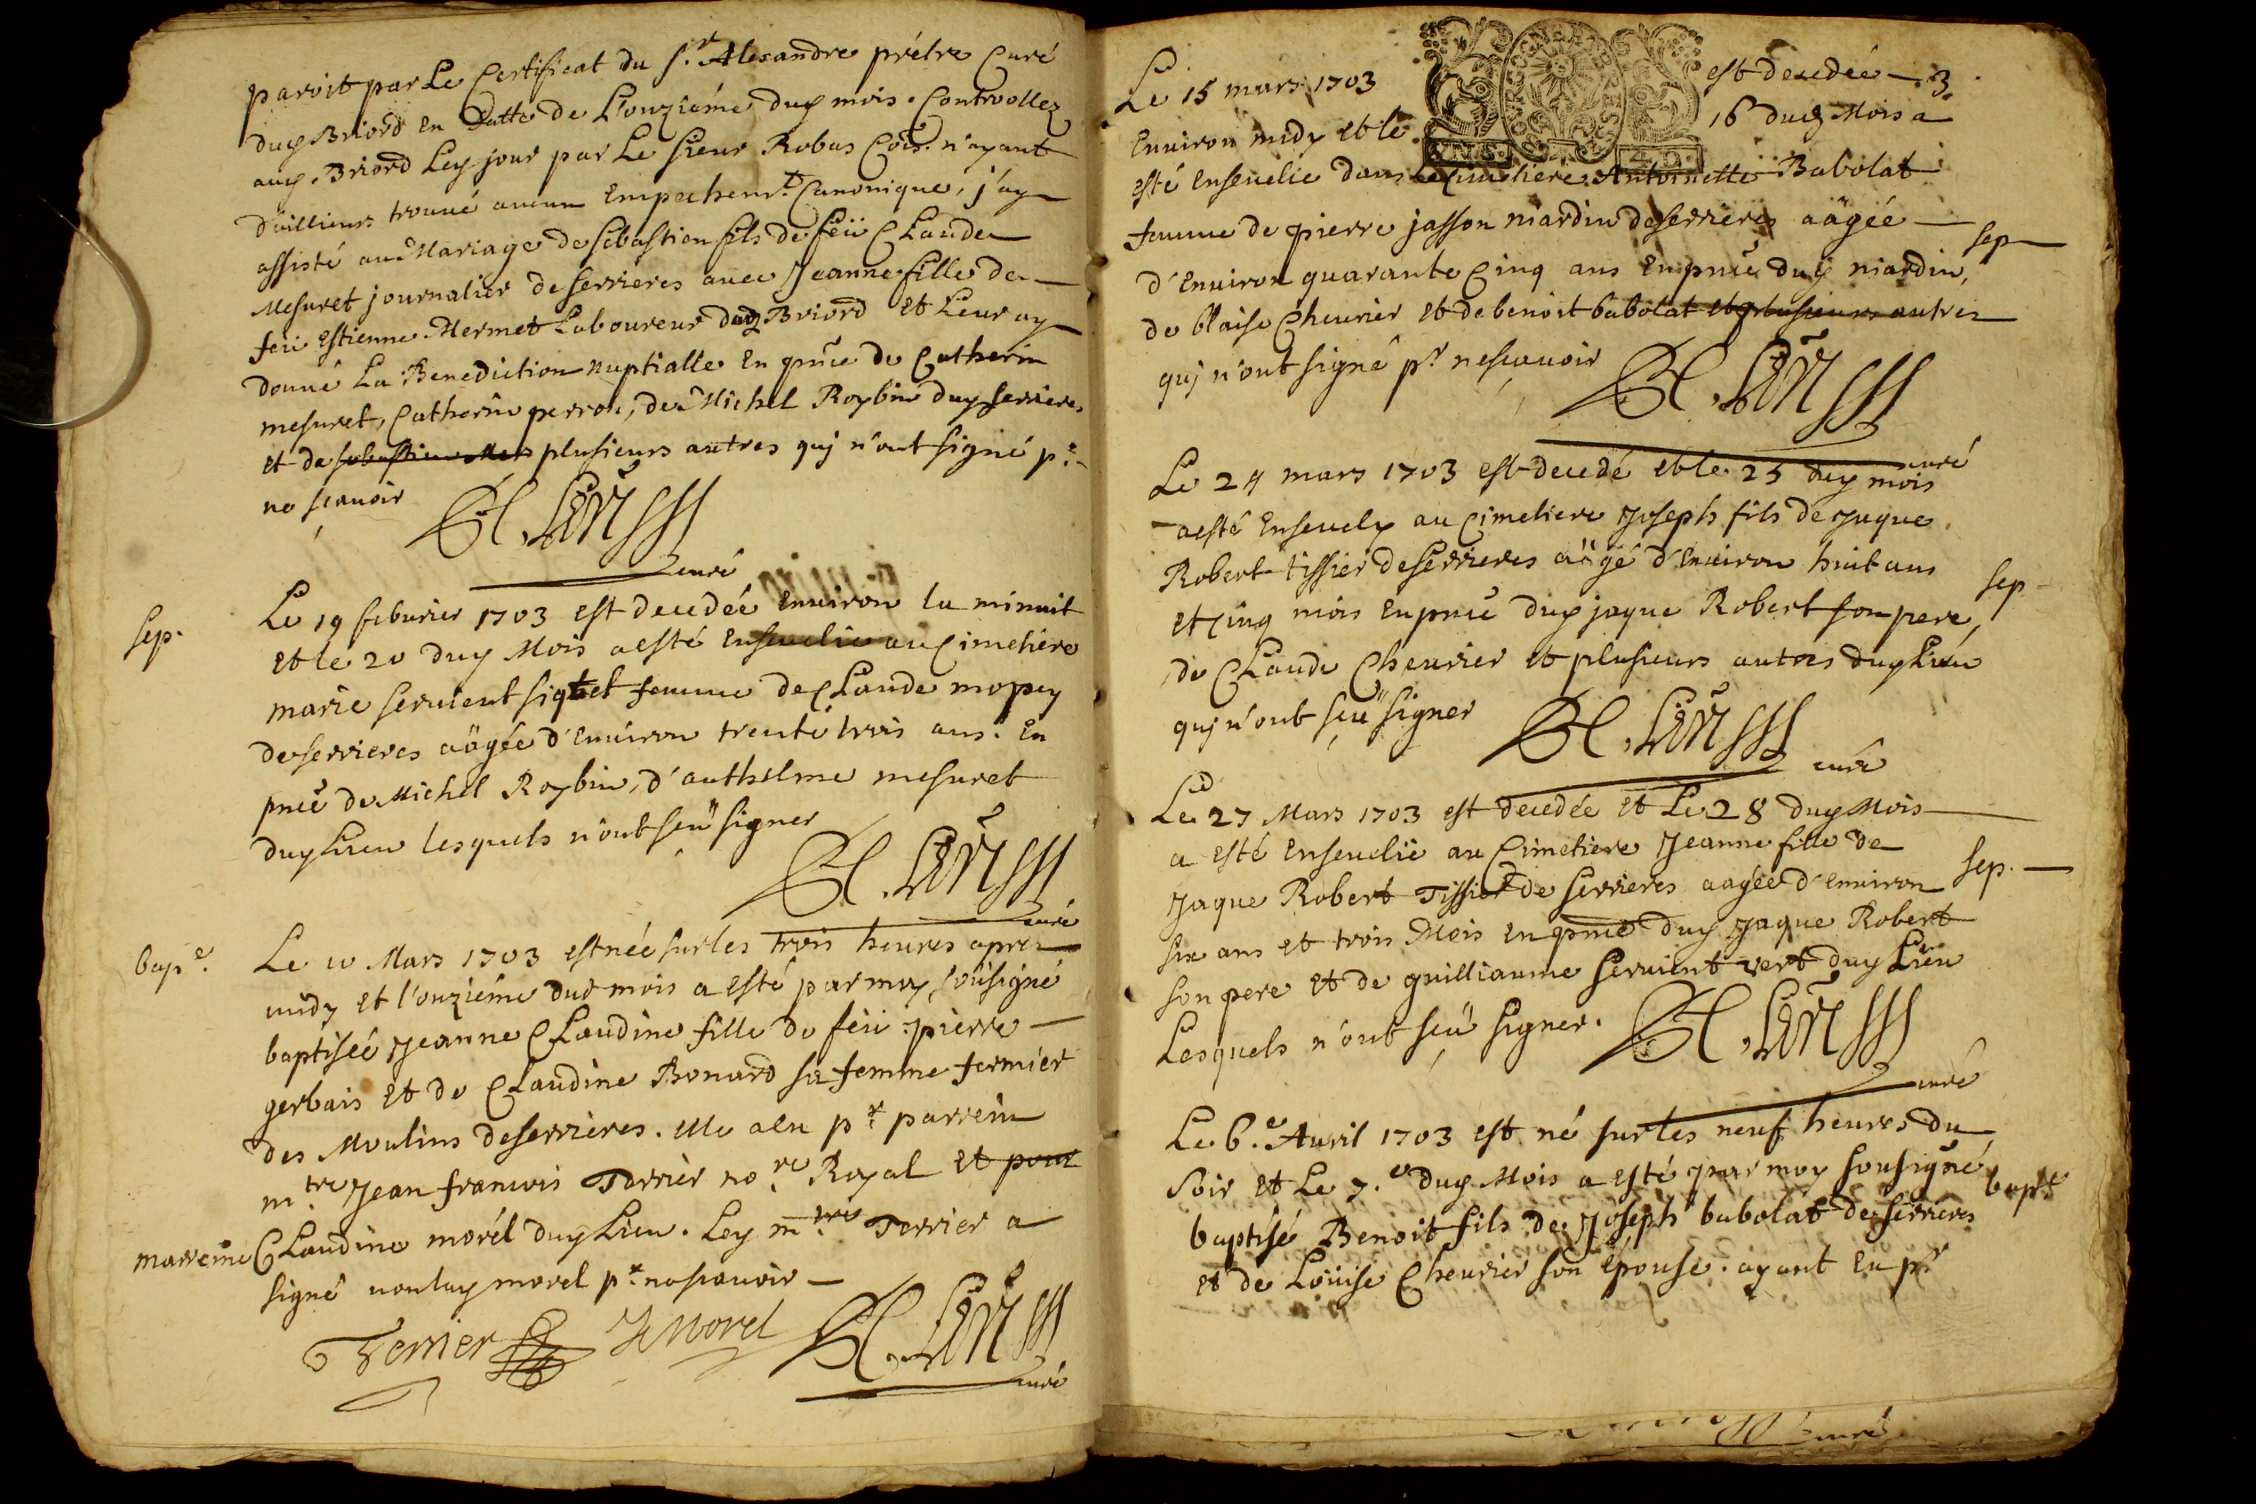 paroit par Le Certificat du S.r Alexandre prétre Curé
duy Briord en Datte de L'onziéme duy mois. Controollez
auy. Briord Ley jour par Le sieur Robas Coïs. n'ayant
d'ailliens trouué aucun Empechem.t Canonique, j'ay
assisté au Mariage de sebastien fils de feü CLaude
Mesuret journalier de serrieres auec Jeanne fille de
feü Estienne. Mermet Laboureur dudz Briord et Leur ay
donné La Benediction nuptialle En pñce de Catherin
mesuret, Catherin perron, de Michel Roybin duy serrieres
et de sebastien Mes plusieurs autres quj n'ont signé p.r
ne scauoir
curé
sep.
Le 19 feburier 1703 est decedée Enuiron la minuit
et le 20 duy Mois a esté Enseuelie au Cimetiere
marie seruient siqtet femme de CLaude mopey
de serrieres aägée d'Enuiron trente trois ans. En
pnce de Michel Roybin, d'anthelme mesuret
duy Lieu lesquels n'ont sçeu signer
curé
bap.e
Le 10 Mars 1703 est née sur les trois heures apres
midy et l'onziéme dud mois a esté par moy sousigné
baptiséé Jeanne CLaudine fille de feü pierre
gerbais et de CLaudine Bonard sa femme fermier
des Moulins de serrieres. Elle a eu p.r parrein
m.tre Jean francois Terrier no.re Royal et pour
marreine CLaudine morél duy Lieu. Ley m.tre Terrier a
signé non lay morel p.r ne scauoir
Terrier J Morel
curé
3
Le 15 mars 1703 est decedée
Enuiron midy et le 16 dudz Mois a
esté enseuelie dans Le Cimetiere Antoinette Babolat
femme de pierre jasson niardin de serrieres aägée
sep
d'Enuiron quarante Cinq ans En pnce duy niardin,
de blaise Cheurier et de benoit babolat et plusieurs autres
quj n'ont signé p.r ne scauoir
curé
Le 24 mars 1703 est decedé et le 25 duy mois
a esté Enseuely au Cimetiere Joseph fils de Jaque
Robert tissier de serrieres aägé d'enuiron huit ans
sep
et Cinq mois En pnce duy jaque Robert son pere,
de CLaude Cheurier et plusieurs autres duy Lieu
quj n'ont sçeü signer
curé
Le 27 Mars 1703 est decedée et Le 28 duy Mois
a esté Enseuelie au Cimetiere Jeanne fille de
Jaque Robert Tissier de serrieres aagée d'enuiron
sep.
six ans et trois Mois en pnce duy Jaque Robert
son pere et de guilliaume seruient vert duy Lieu
Lesquels n'ont sçeu signer.
curé
Le 6.e Auril 1703 est né sur les neuf heures du
soir et Le 7.e duy Mois a esté par moy sousigné
bapt
baptisé Benoit fils de Joseph babolat de serrieres
et de Loüise Cheurier son épouse. ayant eu p.r
curé